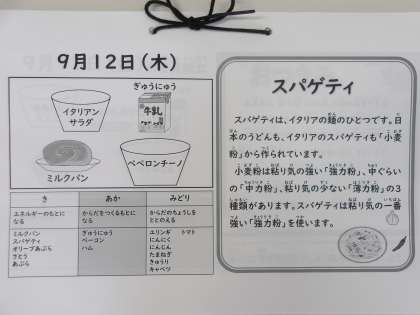 9月12日(木)
イタリアン
サラダ
ぎゅうにゅう
牛乳
ミルクパン
ペペロンチーノ
き
あか
みどり
エネルギーのもとに
なる
からだをつくるもとに
なる
からだのちょうしを
ととのえる
ミルクパン
スパゲティ
オリーブあぶら
さとう
あぶら
ぎゅうにゅう
ベーコン
ハム
エリンギ トマト
にんにく
にんじん
たまねぎ
きゅうり
キャベツ
スパゲティ
スパゲティは、イタリアの麺のひとつです。日
本のうどんも、イタリアのスパゲティも「小麦
粉」から作られています。
小麦粉は粘り気の強い「強力粉」、中ぐらい
の「中力粉」、粘り気の少ない「薄力粉」の3
種類があります。スパゲティは粘り気の一番
強い「強力粉」を使います。